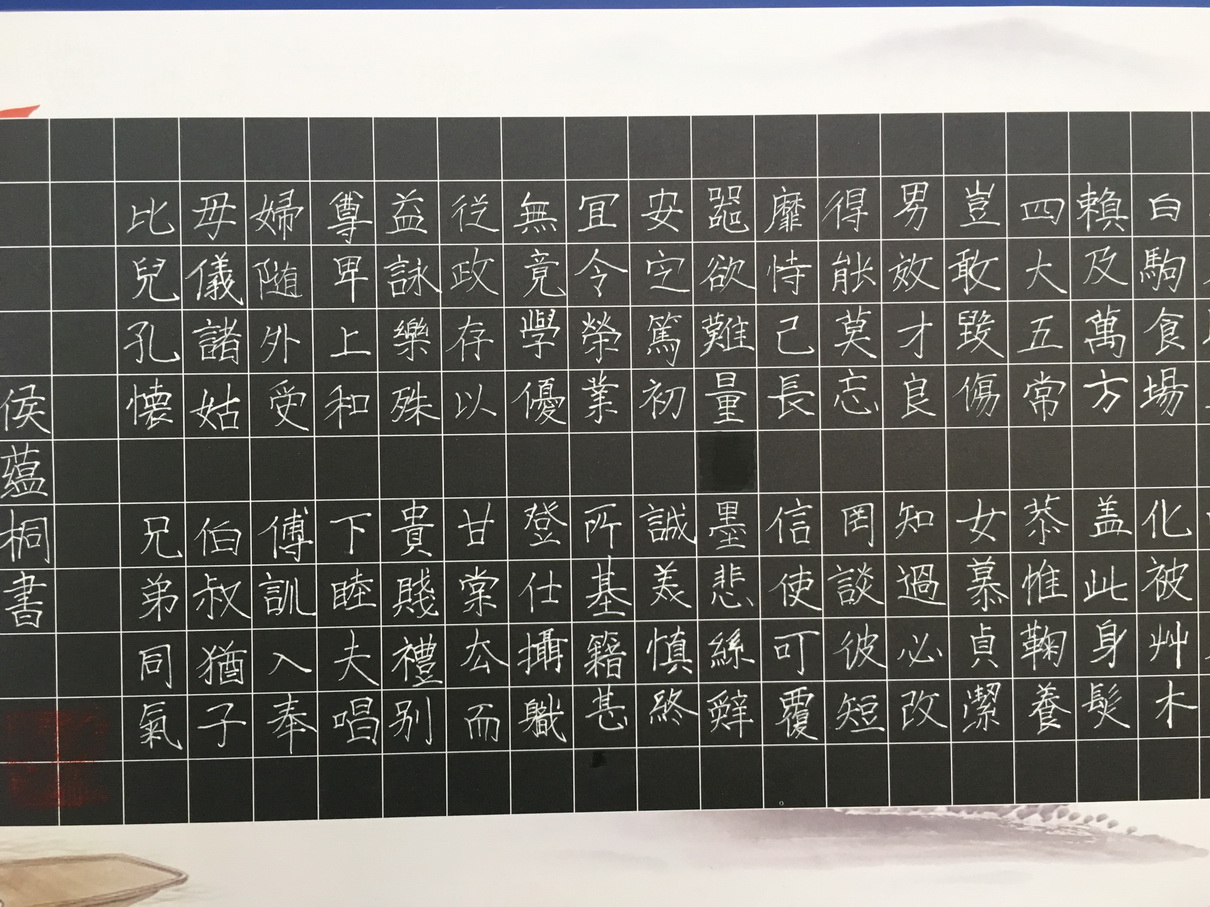 白駒食場化被艸木
賴及萬方盖此身髮
四大五常恭惟鞠養
豈敢毀傷女慕貞潔
男效才良知過必改
得能莫忘罔談彼短
靡恃己長信使可覆
器欲難量墨悲絲
安定篤初誠美慎終
宜令榮業所基籍甚
無竟學優登仕攝職
從政存以甘棠去而
益詠樂殊貴賤禮别
尊卑上和下睦夫唱
婦随外受傅訓入奉
母儀諸姑伯叔猶子
比兒孔懐兄弟同氣
侯蘊桐書